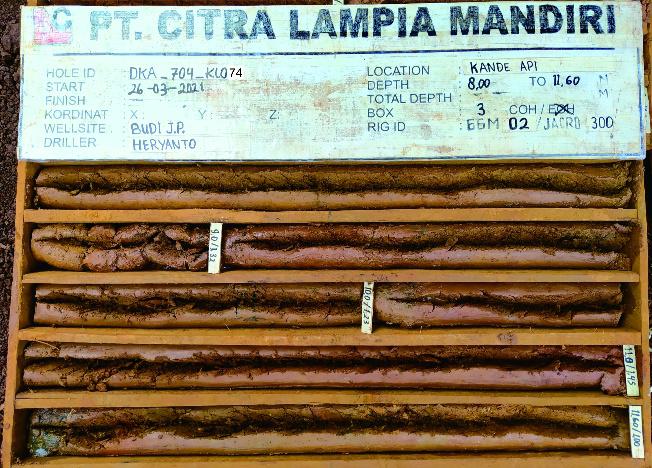 PT. CITRA LAMPIA MANDIRI
HOLE ID : DKA_704_KL074
START : 26-03-2021
FINISH : —
KORDINAT X: Y: Z:
WELLSITE : BUDI J.P.
DRILLER : HERYANTO
LOCATION : KANDE API
DEPTH : 8,00 TO 11,60 M
TOTAL DEPTH : M
BOX : 3 COH / EOH
RIG ID : GGM 02 /JACRO 300
9.0/1.32
10.0/1.23
11.0/1.45
11.60/1.00